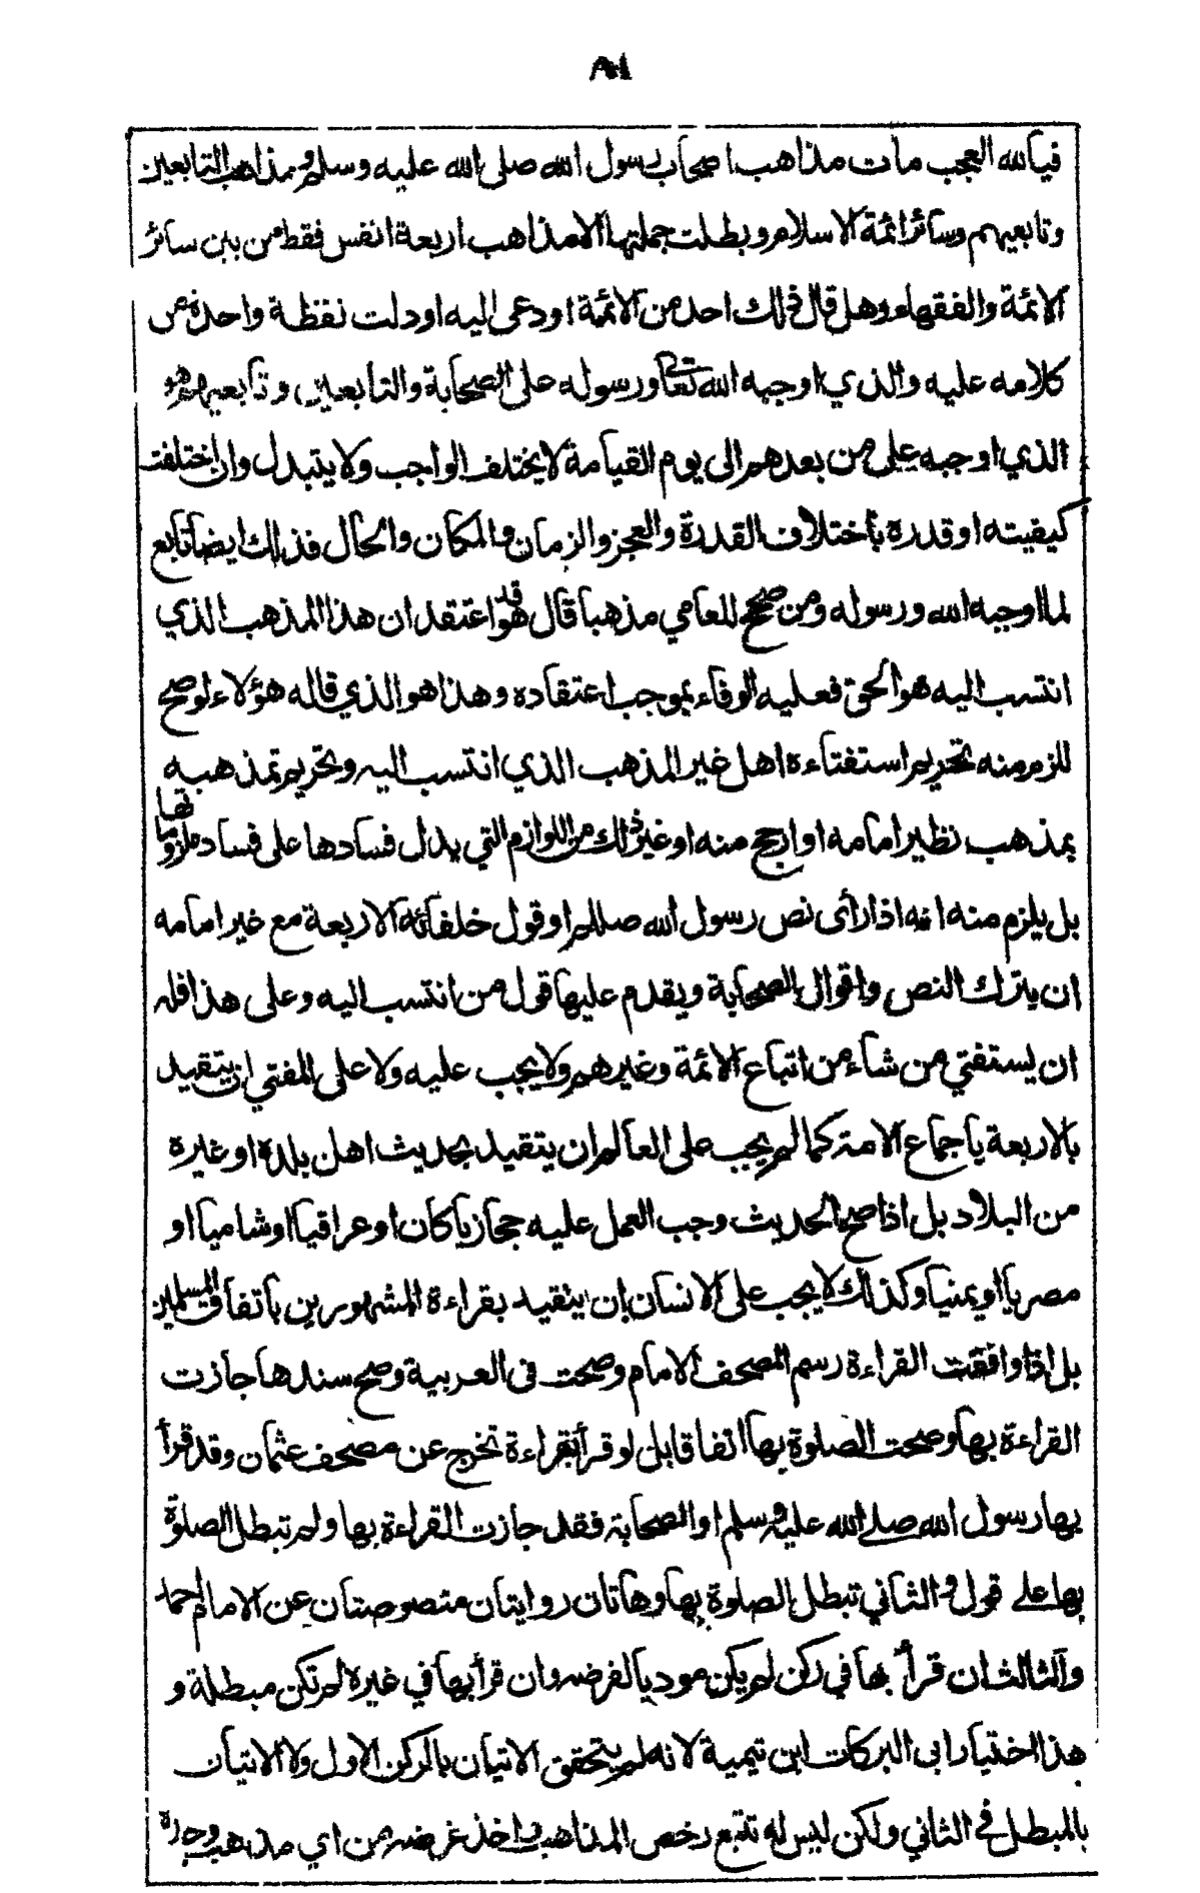 فيالله العجب ماتت مذاهب اصحاب رسول الله صلى الله عليه وسلم ومذاهب التابعين
وتابعيهم وسائر ائمة الاسلام وبطلت جملتها الا مذاهب اربعة انفس فقط من بين سائر
الائمة والفقهاء وهل قال ذلك احد من الائمة او دعى اليه او دلت لفظة واحدة من
كلامه عليه والذي اوجبه الله تعالى ورسوله على الصحابة والتابعين وتابعيهم هو
الذي اوجبه على من بعدهم الى يوم القيامة لا يختلف الواجب ولا يتبدل وان اختلفت
كيفيته او قدره باختلاف القدرة والعجز والزمان والمكان والحال فذلك ايضا تابع
لما اوجبه الله ورسوله ومن صحح للعامي مذهبا قال هو قد اعتقد ان هذا المذهب الذي
انتسب اليه هو الحق فعليه الوفاء بموجب اعتقاده وهذا هو الذي قاله هؤلاء لو صح
للزم منه تحريم استفتاءه اهل غير المذهب الذي انتسب اليه وتحريم تمذهبه
بمذهب نظير امامه او ارجح منه او غير ذلك من اللوازم التي يدل فسادها على فساد ملزوماتها
بل يلزم منه انه اذا رأى نص رسول الله صللم او قول خلفائه الاربعة مع غير امامه
ان يترك النص واقوال الصحابة ويقدم عليها قول من انتسب اليه وعلى هذا فله
ان يستفتي من شاء من اتباع الائمة وغيرهم ولا يجب عليه ولا على المفتي ان يتقيد
بالاربعة باجماع الامة كما لم يجب على العالم ان يتقيد بحديث اهل بلده او غيره
من البلاد بل اذا صح الحديث وجب العمل عليه حجازيا كان او عراقيا او شاميا او
مصريا او يمنيا وكذلك لا يجب على الانسان ان يتقيد بقراءة المشهورين باتفاق المسلمين
بل اذا وافقت القراءة رسم المصحف الامام وصحت فى العربية وصح سندها جازت
القراءة بها وصحت الصلوة بها اتفاقا بل لو قرأ بقراءة تخرج عن مصحف عثمان وقد قرأ
بها رسول الله صلى الله عليه وسلم او الصحابة فقد جازت القراءة بها ولم تبطل الصلوة
بها على قول والثاني تبطل الصلوة بها وهاتان روايتان منصوصتان عن الامام احمد
والثالث ان قرأ بها في ركن لم يكن موديا لفرضه وان قرأ بها في غيره لم تكن مبطلة و
هذا اختيار ابى البركات ابن تيمية لانه لم يتحقق الاتيان بالركن الاول ولا الاتيان
بالمبطل فى الثاني ولكن ليس له تتبع رخص المذاهب واخذ غرضه من اي مذهب وجده